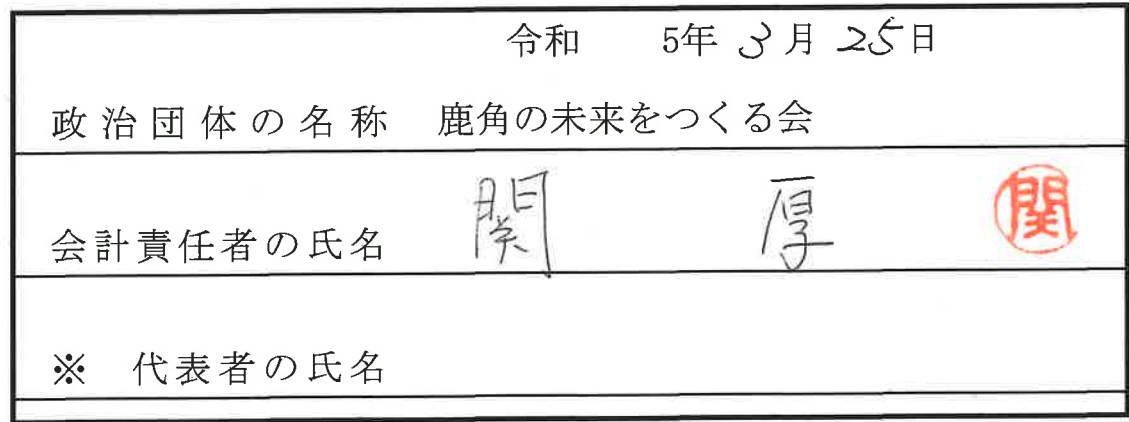 令和 5年 3月 25日
政治団体の名称 鹿角の未来をつくる会
会計責任者の氏名 関 厚 関
※ 代表者の氏名